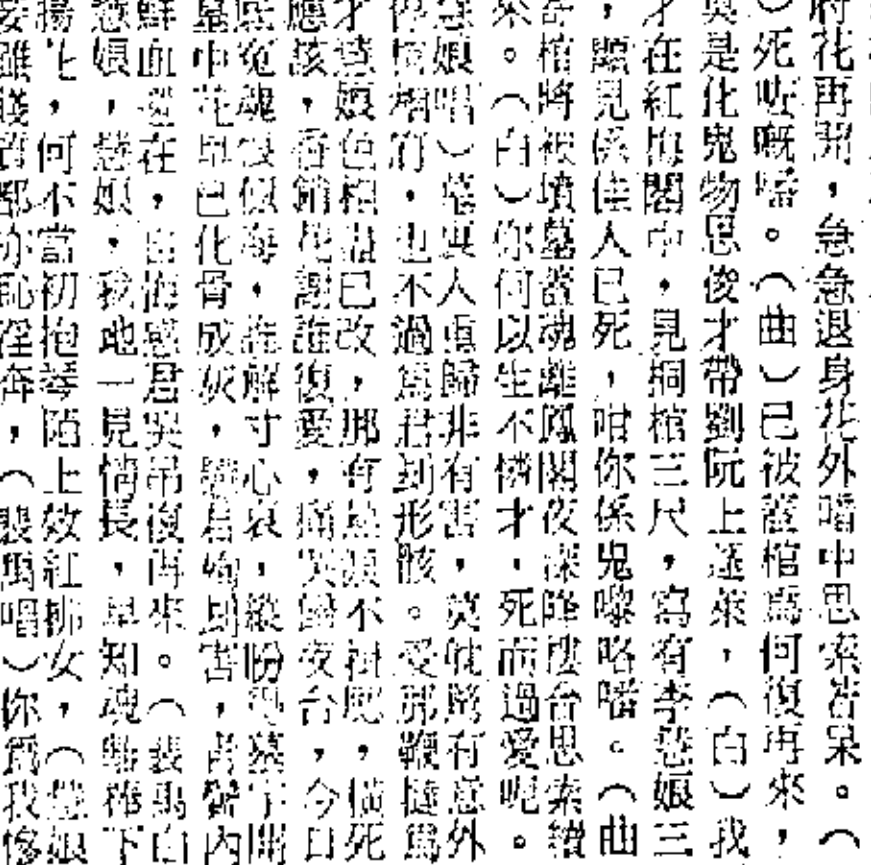 花再開，急急退身花外暗中思索苦杲。（
）死咗嘅噃。（曲）已被蓋棺為何復再來，
莫是化鬼物思俊才帶劉阮上蓬萊，（白）我
才在紅梅閣中，見桐棺三尺，寫有李慧娘三
，顯見係佳人已死，咁你係鬼嚟咯噃。（曲
棺將被墳墓蓋魂離鳳閣夜深降樓台思索續
來。（白）你何以生不憐才，死而過愛呢。
慧娘唱）墓裏人重歸非有害，莫就驚有意外
桐棺，也不過為君到形骸。受那鞭撻為
才慧娘色相盡已改，那有星眼不腮，橫死
應該，香銷花謝誰復愛，痛哭歸夜台，今日
冤魂恨似海，誰解寸心哀，縱盼墓開
墓中花早已化骨成灰，君殉身害，內
鮮血還在，自悔惑君哭吊復再來。（裴禹白
慧娘，慧娘，我地一見情長，早知魂歸下
揚乜，何不當初抱琴陌上效紅拂女，（慧娘
妾雖賤質都亦恥淫奔，（裴禹唱）你為我慘